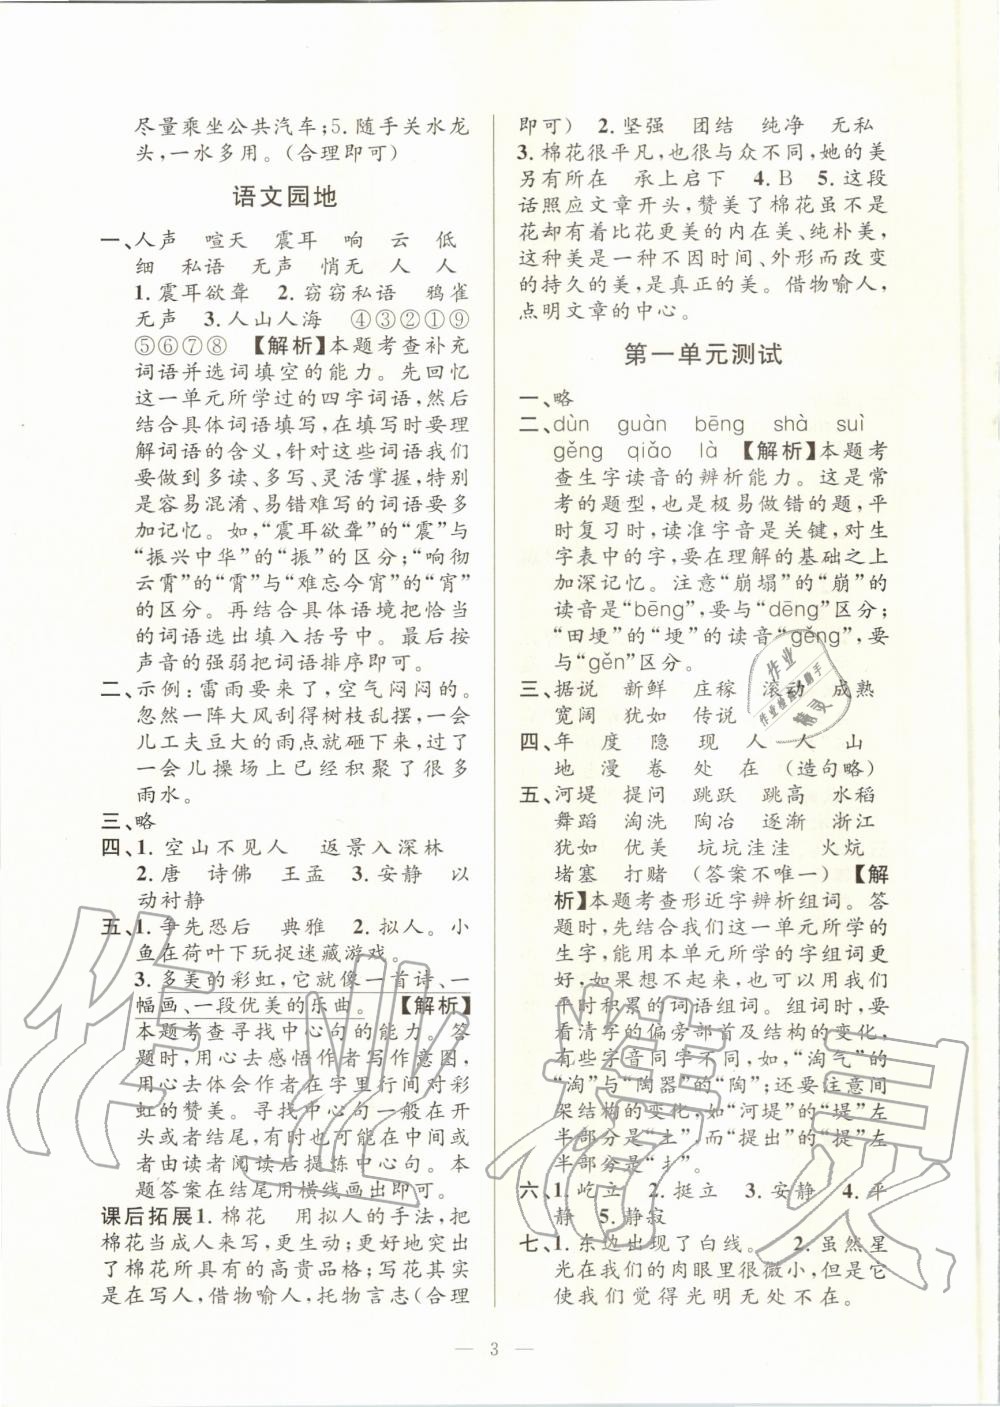 尽量乘坐公共汽车;5. 随手关水龙
头,一水多用。(合理即可)
语文园地
一、人声 喧天 震耳 响 云 低
细 私语 无声 悄无 人 人
1. 震耳欲聋 2. 窃窃私语 鸦雀
无声 3. 人山人海 ④③②①⑨
⑤⑥⑦⑧ 【解析】本题考查补充
词语并选词填空的能力。先回忆
这一单元所学过的四字词语,然后
结合具体词语填写,在填写时要理
解词语的含义,针对这些词语我们
要做到多读、多写、灵活掌握,特别
是容易混淆、易错难写的词语要多
加记忆。如,“震耳欲聋”的“震”与
“振兴中华”的“振”的区分;“响彻
云霄”的“霄”与“难忘今宵”的“宵”
的区分。再结合具体语境把恰当
的词语选出填入括号中。最后按
声音的强弱把词语排序即可。
二、示例:雷雨要来了,空气闷闷的。
忽然一阵大风刮得树枝乱摆,一会
儿工夫豆大的雨点就砸下来,过了
一会儿操场上已经积聚了很多
雨水。
三、略
四、1. 空山不见人 返景入深林
2. 唐 诗佛 王孟 3. 安静 以
动衬静
五、1. 争先恐后 典雅 2. 拟人。小
鱼在荷叶下玩捉迷藏游戏。
3. 多美的彩虹,它就像一首诗、一
幅画、一段优美的乐曲。 【解析】
本题考查寻找中心句的能力。答
题时,用心去感悟作者写作意图,
用心去体会作者在字里行间对彩
虹的赞美。寻找中心句一般在开
头或者结尾,有时也可能在中间或
或者由读者阅读后提炼中心句。本
题答案在结尾用横线画出即可。
课后拓展1. 棉花 用拟人的手法,把
棉花当成人来写,更生动;更好地突出
了棉花所具有的高贵品格;写花其实
是在写人,借物喻人,托物言志(合理
即可) 2. 坚强 团结 纯净 无私
3. 棉花很平凡,也很与众不同,她的美
另有所在 承上启下 4. B 5. 这段
话照应文章开头,赞美了棉花虽不是
花却有着比花更美的内在美、纯朴美,
这种美是一种不因时间、外形而改变
的持久的美,是真正的美。借物喻人,
点明文章的中心。
第一单元测试
一、略
二、dùn guàn bēng shà suì
gěng qiāo là 【解析】本题考
查生字读音的辨析能力。这是常
考的题型,也是极易做错的题,平
时复习时,读准字音是关键,对生
字表中的字,要在理解的基础之上
加深记忆。注意“崩塌”的“崩”的
读音是“bēng”,要与“dēng”区分;
“田埂”的“埂”的读音“gěng”,要
与“gěn”区分。
三、据说 新鲜 庄稼 滚动 成熟
宽阔 犹如 传说
四、年 度 隐 现 人 人 山
地 漫 卷 处 在 (造句略)
五、河堤 提问 跳跃 跳高 水稻
舞蹈 淘洗 陶冶 逐渐 浙江
犹如 优美 坑坑洼洼 火炕
堵塞 打赌 (答案不唯一) 【解
析】本题考查形近字辨析组词。答
题时,先结合我们这一单元所学的
生字,能用本单元所学的字组词更
好,如果想不起来,也可以用我们
平时积累的词语组词。组词时,要
看清字的偏旁部首及结构的变化,
有些字音同字不同,如,“淘气”的
“淘”与“陶器”的“陶”;还要注意间
架结构的变化,如“河堤”的“堤”左
半部分是“土”,而“提出”的“提”左
半部分是“扌”。
六、1. 屹立 2. 挺立 3. 安静 4. 平
静 5. 静寂
七、1. 东边出现了白线。 2. 虽然星
光在我们的肉眼里很微小,但是它
使我们觉得光明无处不在。
— 3 —
作业精灵
作业
作业检查小助手
精灵